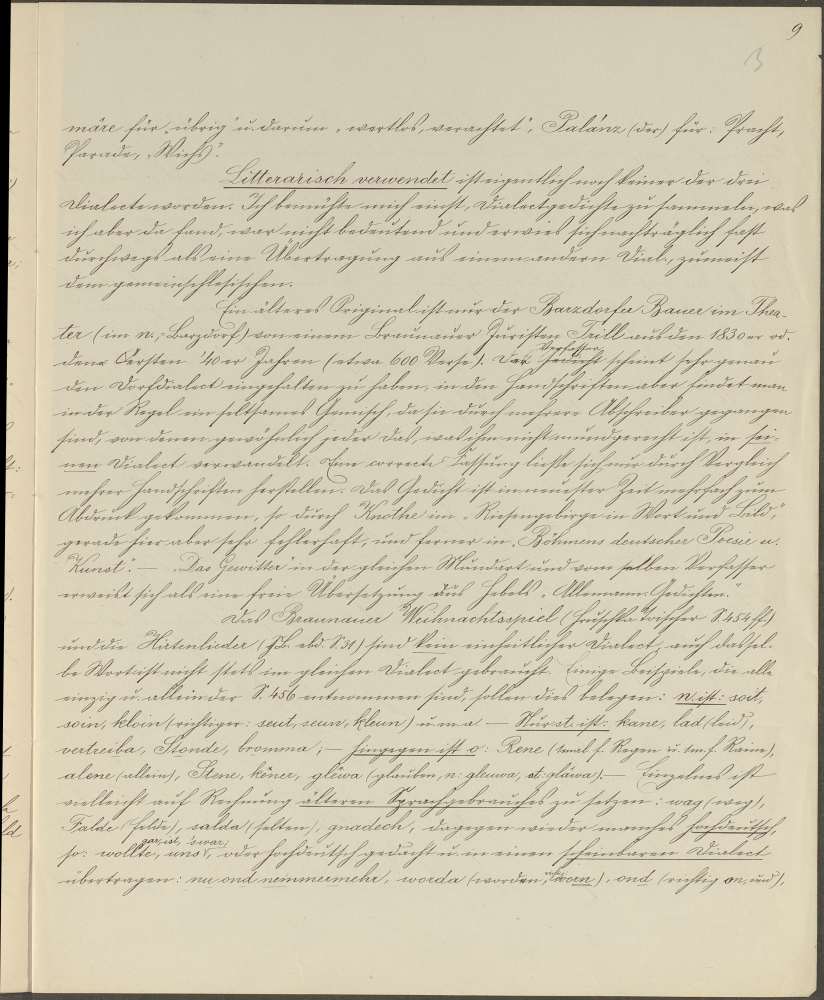 9
B
märe für „übrig“ u. darum „wertlos, verachtet“, Palánz (der) für: Pracht,
Parade, „Wichs“.
Litterarisch verwendet ist eigentlich noch keiner der drei
Dialecte worden. Ich bemühte mich einst, Dialectgedichte zu sammeln, was
ich aber da fand, war nicht bedeutend und erwies sich nachträglich fast
durchwegs als eine Übertragung aus einem andern Dial., zumeist
dem gemeinschlesischen.
Ein älteres Original ist nur der Barzdorfer Bauer im Thea-
ter (im n., Barzdorf) von einem Braunauer Juristen Trill aus den 1830er od.
denn Ersten 40er Jahren (etwa 600 Verse). Der Verfasser scheint sehr genau
den Dorfdialect eingehalten zu haben, in den Handschriften aber findet man
in der Regel ein seltsames Gemisch, da sie durch mehrere Abschreiber gegangen
sind, von denen gewöhnlich jeder das, was ihm nicht mundgerecht ist, in sei-
nen Dialect verwandelt. Eine correcte Fassung ließe sich nur durch Vergleich
mehrer Handschriften herstellen. Das Gedicht ist in neuester Zeit mehrfach zum
Abdruck gekommen, so durch Knothe im „Riesengebirge in Wort und Bild“,
gerade hier aber sehr fehlerhaft, und ferner in „Böhmens deutscher Poesie u.
Kunst“. — „Das Gewitter“ in der gleichen Mundart und vom selben Verfasser
erweist sich als eine freie Übersetzung aus Hebels „Allemann. Gedichten.“
Das Braunauer Weihnachtsspiel (Hruschka Toischer S. 454 ff.)
und die Hirtenlieder (ebd. S. 31) sind kein einheitlicher Dialect, auch dassel-
be Wort ist nicht stets im gleichen Dialect gebraucht. Einige Beispiele, die alle
einzig u. allein der S. 456 entnommen sind, sollen dies belegen: n. ist: soit,
soin, kloin (richtiger: seut, seun, kleun) u. m. a. — Nur st. ist: kane, lad (leid),
vertreiba, Stonde, bromma, — hingegen ist o: Rene (1mal f. Regen u. 1m. f. Raine),
alene (allein), Stene, kêner, glêwa (glauben, n: gleuwa, st: gläwa). — Einzelnes ist
vielleicht auf Rechnung älteren Sprachgebrauches zu setzen: wag (weg),
Falde (Felde), salda (selten), gnadech, dagegen wieder manches hochdeutsch,
so: wollte, uns, gar ist, zwar, oder hochdeutsch gedacht u. in einen scheinbaren Dialect
übertragen: nu ond nemmermehr, worda (worden, wern), ond (richtig on, und),